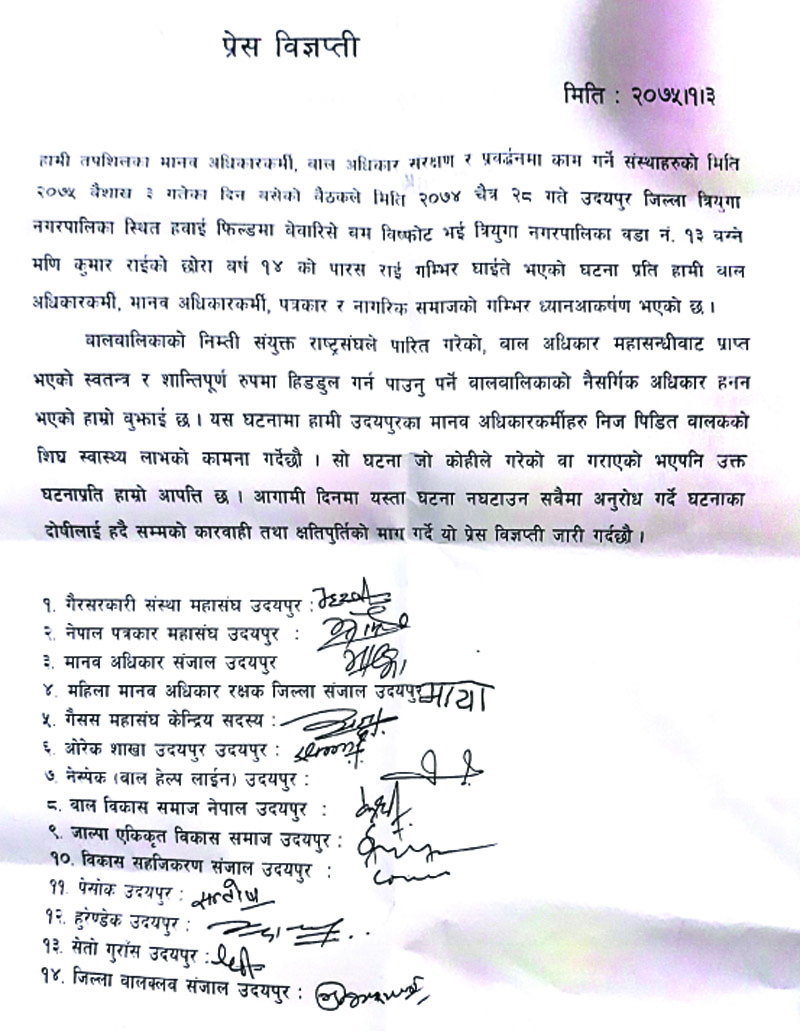 प्रेस विज्ञप्ती
मिति : २०७५।१।३
हामी तपशिलका मानव अधिकारकर्मी, बाल अधिकार सरक्षण र प्रवर्द्धनमा काम गर्ने संस्थाहरुको मिति
२०७५ वैशाख ३ गतेका दिन बसेको बैठकले मिति २०७४ चैत्र २८ गते उदयपुर जिल्ला त्रियुगा
नगरपालिका स्थित हवाई फिल्डमा बेवारिसे बम विष्फोट भई त्रियुगा नगरपालिका वडा नं. १३ बस्ने
मणि कुमार राईको छोरा वर्ष १४ को पारस राई गम्भिर घाईते भएको घटना प्रति हामी बाल
अधिकारकर्मी, मानव अधिकारकर्मी, पत्रकार र नागरिक समाजको गम्भिर ध्यानआकर्षण भएको छ ।
बालबालिकाको निम्ती संयुक्त राष्ट्रसंघले पारित गरेको, बाल अधिकार महासन्धीबाट प्राप्त
भएको स्वतन्त्र र शान्तिपूर्ण रुपमा हिडडुल गर्न पाउनु पर्ने बालबालिकाको नैसर्गिक अधिकार हनन
भएको हाम्रो बुझाई छ । यस घटनामा हामी उदयपुरका मानव अधिकारकर्मीहरु निज पिडित बालकको
शिघ्र स्वास्थ्य लाभको कामना गर्दछौ । सो घटना जो कोहीले गरेको वा गराएको भएपनि उक्त
घटनाप्रति हाम्रो आपत्ति छ । आगामी दिनमा यस्ता घटना नघटाउन सबैमा अनुरोध गर्दै घटनाका
दोषीलाई हदै सम्मको कारवाही तथा क्षतिपुर्तिको माग गर्दै यो प्रेस विज्ञप्ती जारी गर्दछौ ।
१. गैरसरकारी संस्था महासंघ उदयपुर :
२. नेपाल पत्रकार महासंघ उदयपुर :
३. मानव अधिकार संजाल उदयपुर
४. महिला मानव अधिकार रक्षक जिल्ला संजाल उदयपुर माया
५. गैसस महासंघ केन्द्रिय सदस्य :
६. ओरेक शाखा उदयपुर उदयपुर :
७. नेस्पेक (बाल हेल्प लाईन) उदयपुर :
८. बाल विकास समाज नेपाल उदयपुर :
९. जाल्पा एकिकृत विकास समाज उदयपुर :
१०. विकास सहजिकरण संजाल उदयपुर :
११. पेसोक उदयपुर : सन्तोष
१२. हुरेण्डेक उदयपुर :
१३. सेतो गुराँस उदयपुर :
१४. जिल्ला बालक्लव संजाल उदयपुर :